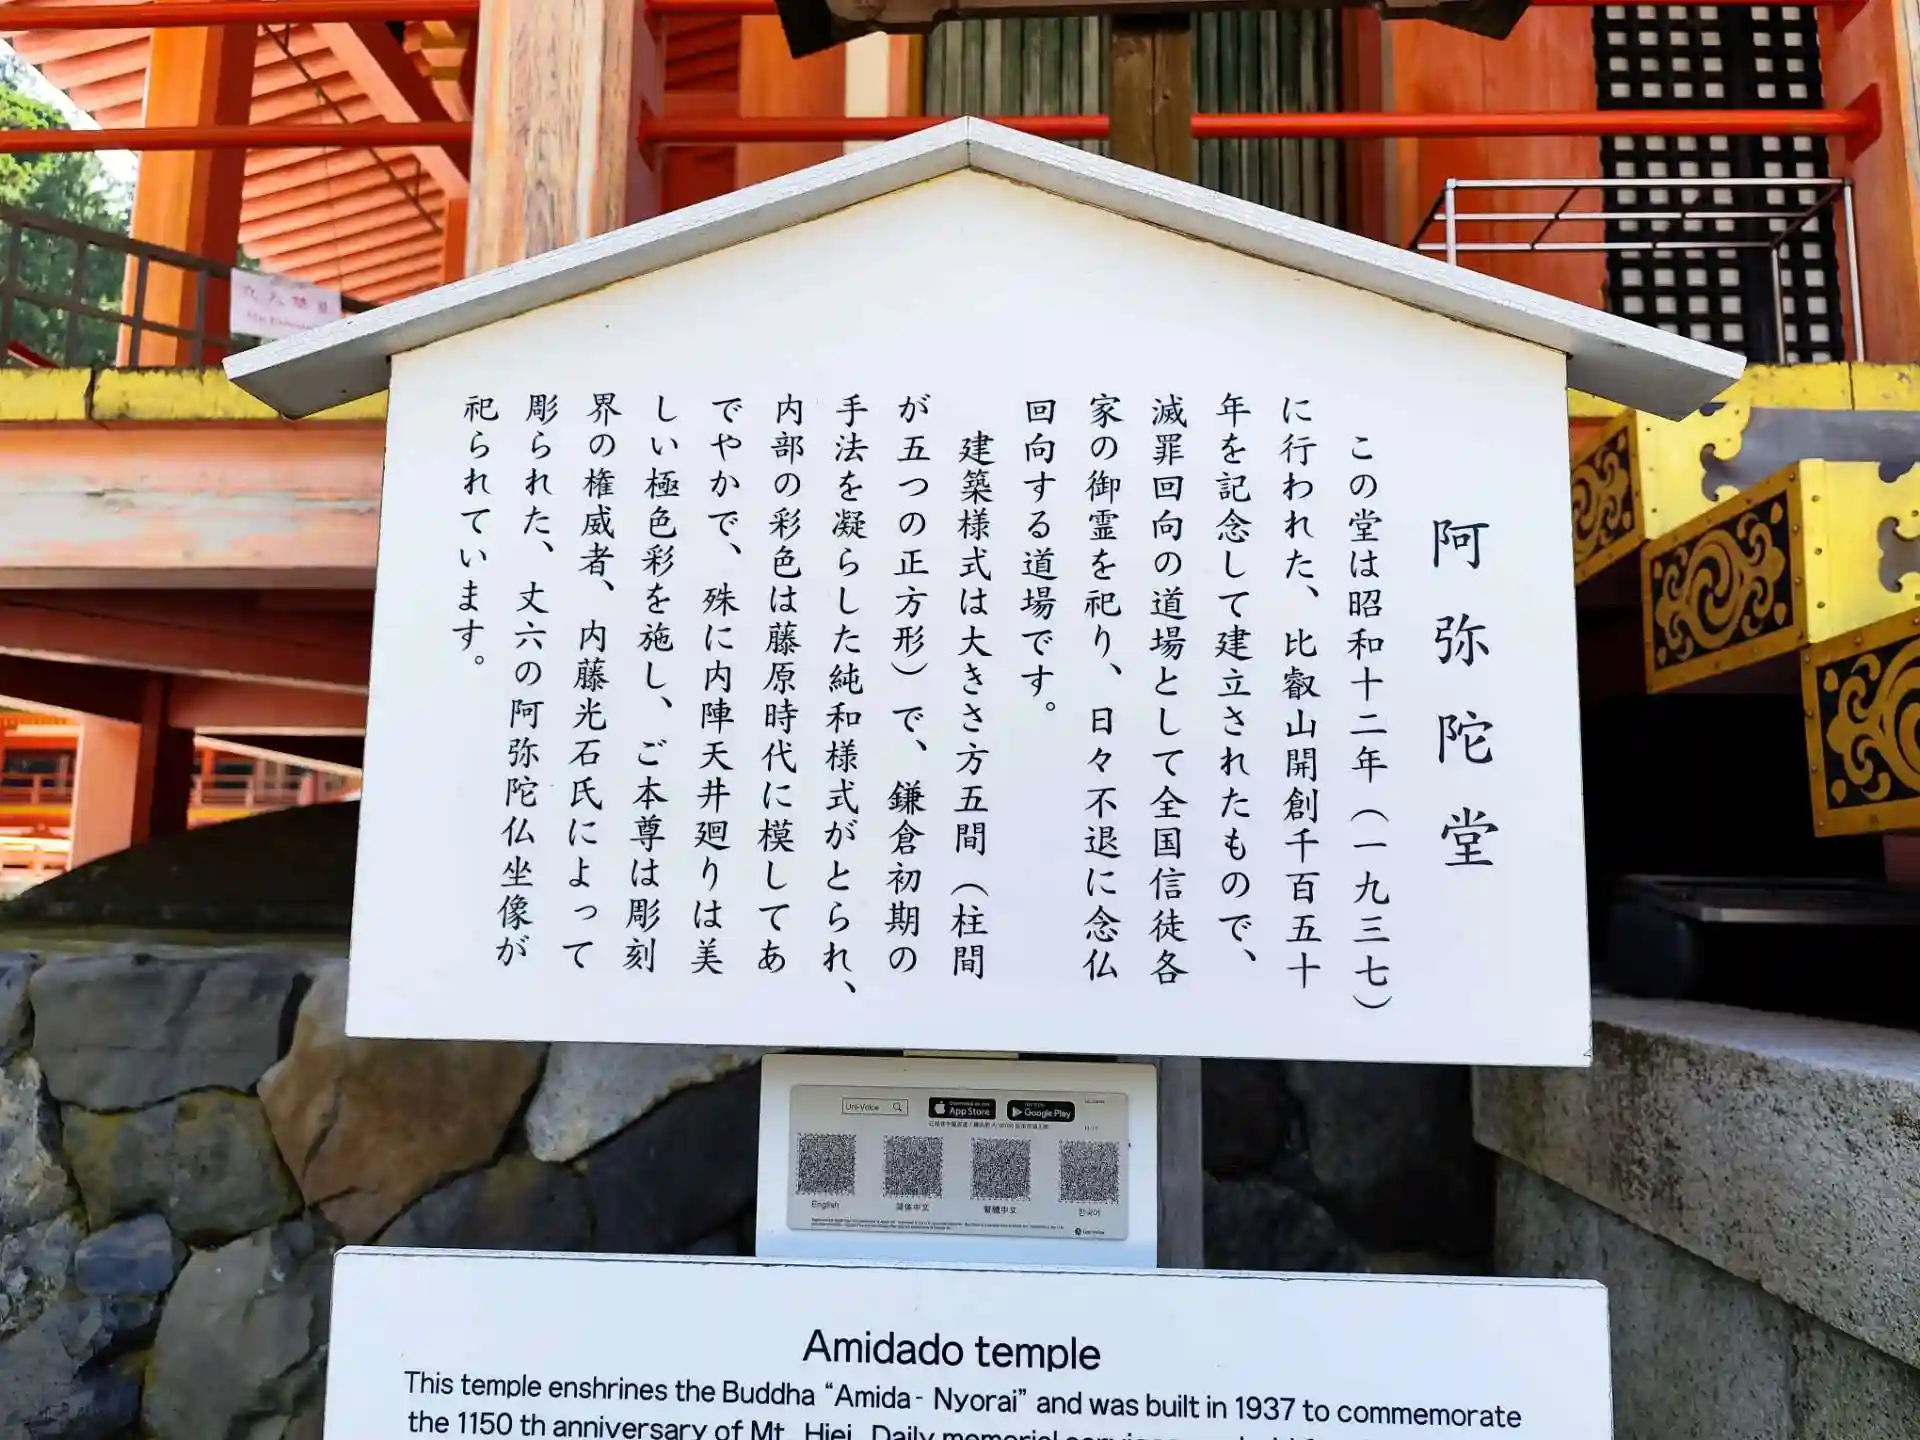 阿弥陀堂
この堂は昭和十二年（一九三七）
に行われた、比叡山開創千百五十
年を記念して建立されたもので、
滅罪回向の道場として全国信徒各
家の御霊を祀り、日々不退に念仏
回向する道場です。
建築様式は大きさ方五間（柱間
が五つの正方形）で、鎌倉初期の
手法を凝らした純和様式がとられ、
内部の彩色は藤原時代に模してあ
でやかで、殊に内陣天井廻りは美
しい極色彩を施し、ご本尊は彫刻
界の権威者、内藤光石氏によって
彫られた、丈六の阿弥陀仏坐像が
祀られています。
Uni-Voice
App Store
Google Play
English
简体中文
繁體中文
한국어
Amidado temple
This temple enshrines the Buddha “Amida- Nyorai” and was built in 1937 to commemorate
the 1150 th anniversary of Mt. Hiei. Daily memorial